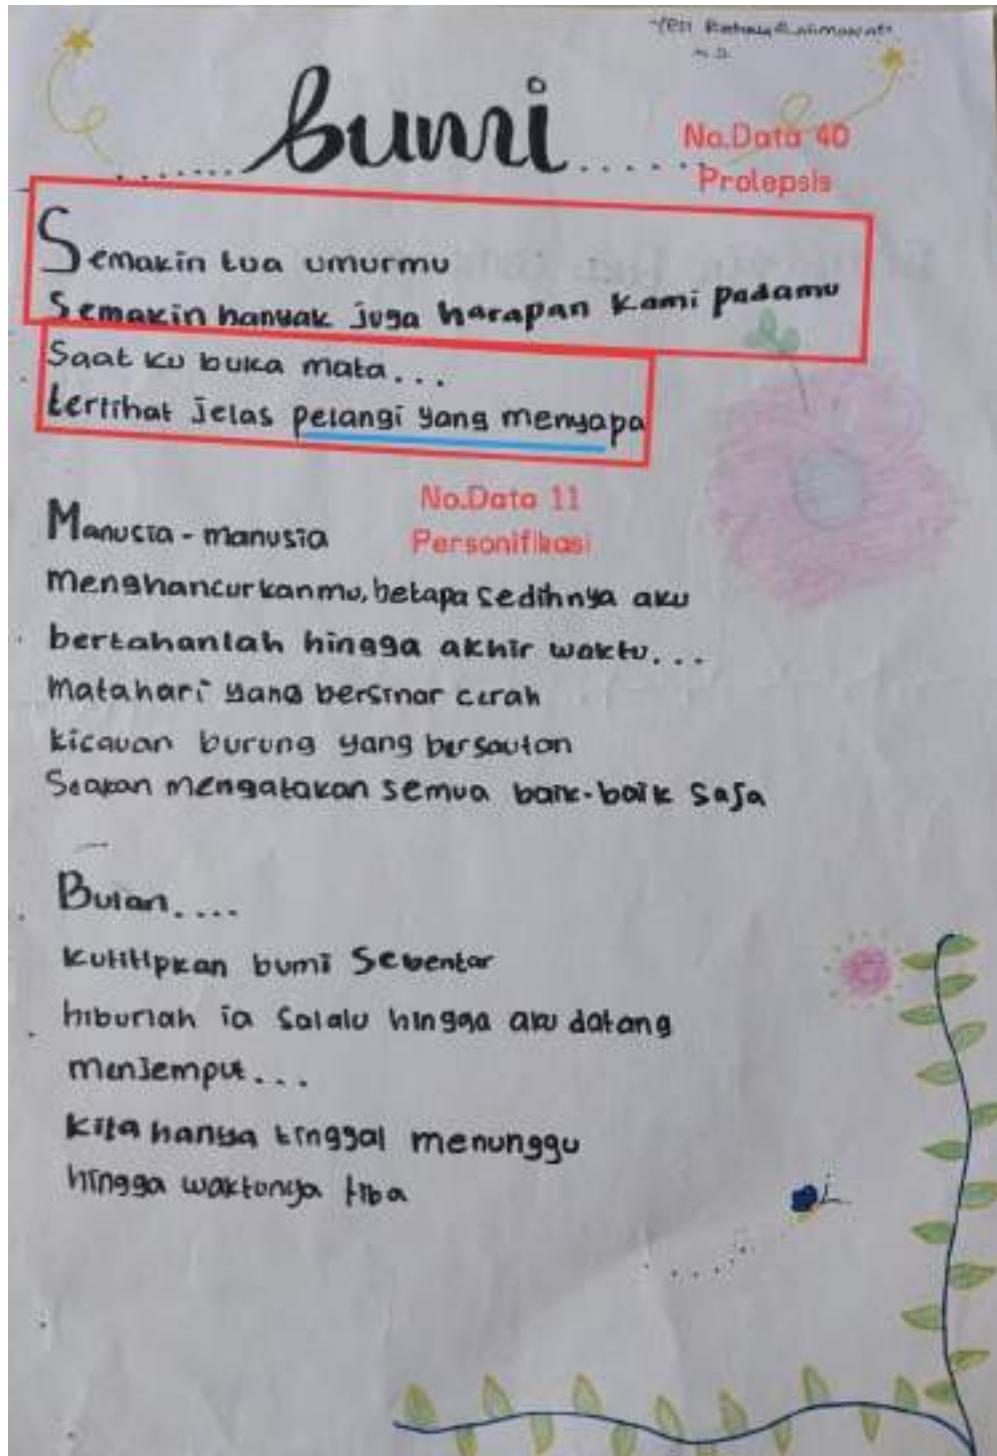 bumi
No.Data 40
Prolepsis
Semakin tua umurmu
Semakin banyak juga harapan kami padamu
Saat ku buka mata...
terlihat jelas pelangi yang menyapa
No.Data 11
Personifikasi
Manusia - manusia
menghancurkanmu, betapa sedihnya aku
bertahanlah hingga akhir waktu...
Matahari yang bersinar cerah
kicauan burung yang bersautan
Seakan mengatakan semua baik-baik saja
Bulan....
kutitipkan bumi Sebentar
hiburlah ia Salalu hingga aku datang
menjemput...
kita hanya tinggal menunggu
hingga waktunya tiba